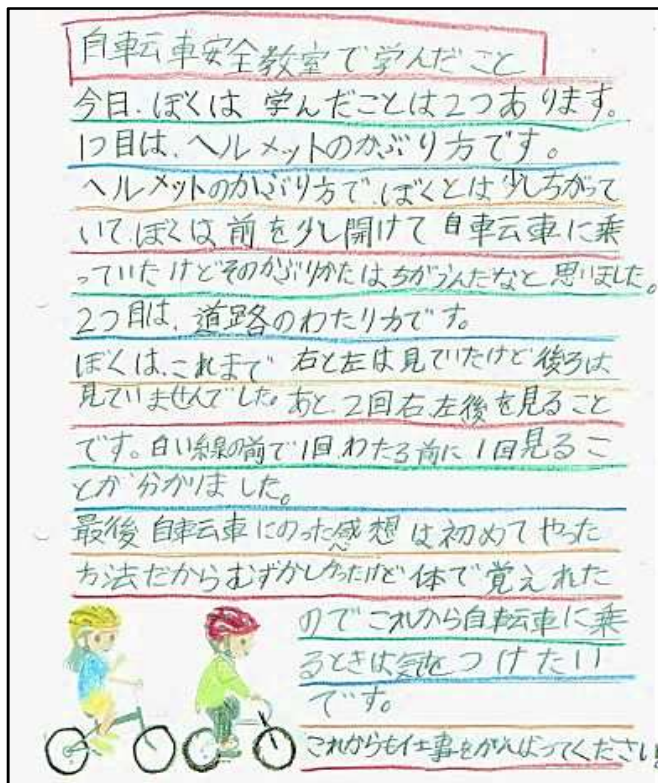 自転車安全教室で学んだこと
今日、ぼくは 学んだことは2つあります。
1つ目は、ヘルメットのかぶり方です。
ヘルメットのかぶり方で、ぼくとは少しちがって
いて、ぼくは前を少し開けて自転車に乗
っていたけどそのかぶりかたはちがうんだなと思いました。
2つ目は、道路のわたり方です。
ぼくは、これまで 右と左は見ていたけど後ろは
見ていませんでした。あと、2回右、左後を見ること
です。白い線の前で1回、わたる前に1回見るこ
とが分かりました。
最後 自転車にのった感想は初めてやった
方法だからむずかしかったけど体で覚えれた
のでこれから自転車に乗
るときは気をつけたい
です。
これからも仕事をがんばってください!